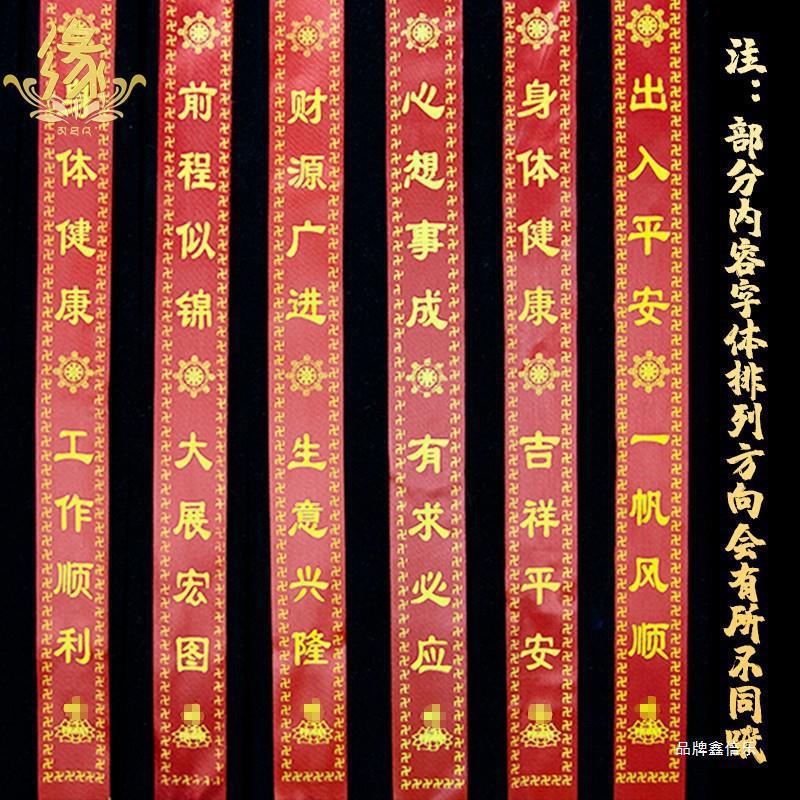 缘
体健康 工作顺利
前程似锦 大展宏图
财源广进 生意兴隆
心想事成 有求必应
身体健康 吉祥平安
出入平安 一帆风顺
注：部分内容字体排列方向会有所不同哦